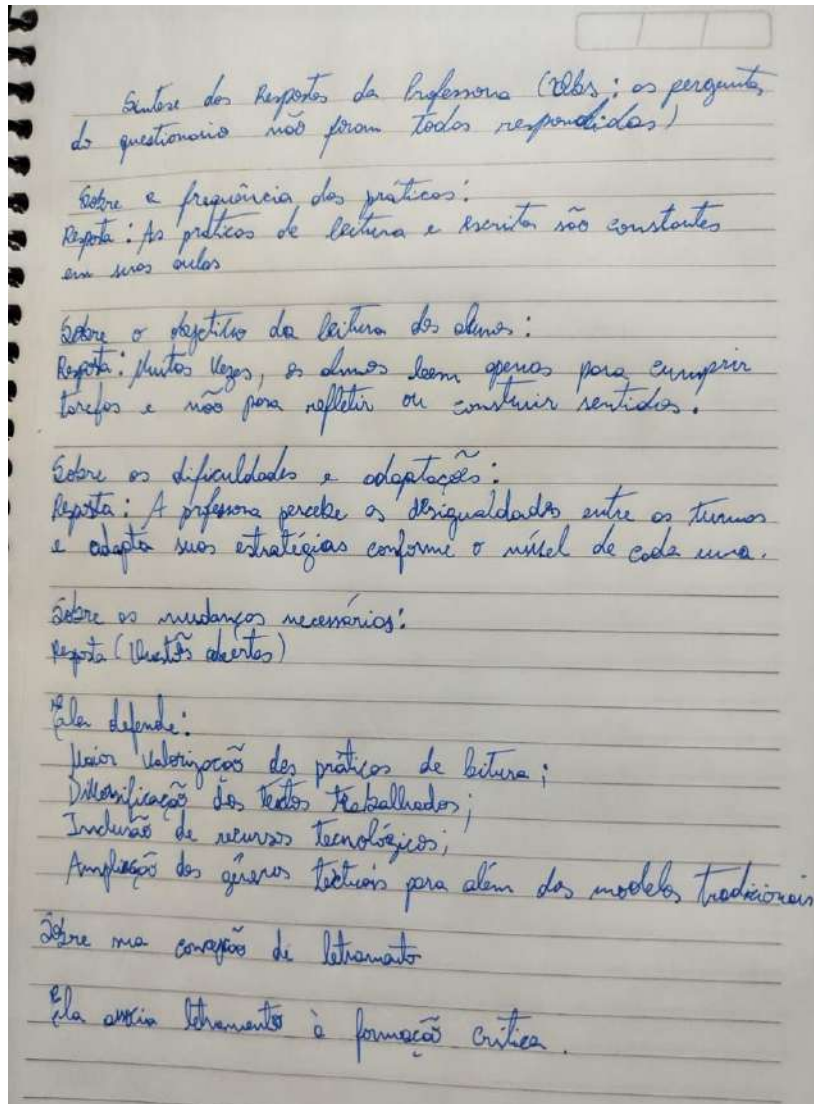 Síntese das Respostas da Professora (Obs: as perguntas
do questionario não foram todas respondidas)
Sobre a frequência das práticas:
Resposta: As práticas de leitura e escrita são constantes
em suas aulas
Sobre o objetivo da leitura dos alunos:
Resposta: Muitas vezes, os alunos leem apenas para cumprir
tarefas e não para refletir ou construir sentidos.
Sobre as dificuldades e adaptações:
Resposta: A professora percebe as desigualdades entre as turmas
e adapta suas estratégias conforme o nível de cada uma.
Sobre as mudanças necessárias:
Resposta (Questões abertas)
Ela defende:
Maior valorização das práticas de leitura;
Diversificação dos textos trabalhados;
Inclusão de recursos tecnológicos;
Ampliação dos gêneros textuais para além dos modelos tradicionais
Sobre sua concepção de letramento
Ela associa letramento à formação crítica.